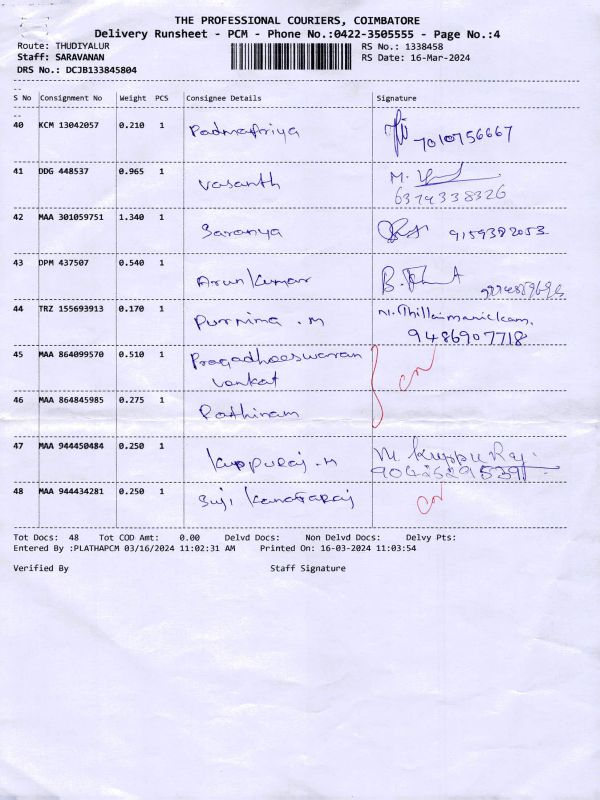 THE PROFESSIONAL COURIERS, COIMBATORE
Delivery Runsheet - PCM - Phone No.:0422-3505555 - Page No.:4
Route: THUDIYALUR RS No.: 1338458
Staff: SARAVANAN RS Date: 16-Mar-2024
DRS No.: DCJB133845804
S No Consignment No Weight PCS Consignee Details Signature
40 KCM 13042057 0.210 1 Padmapriya 7010756667
41 DDG 448537 0.965 1 Vasanth M.
6374338326
42 MAA 301059751 1.340 1 Saranya 9159382053
43 DPM 437507 0.540 1 Arun Kumar B.
44 TRZ 155693913 0.170 1 Purnima .M M.Thillaimanickam,
9486907718
45 MAA 864099570 0.510 1 Pragadheeswaran
Vankat
46 MAA 864845985 0.275 1 Pathiram
47 MAA 944450484 0.250 1 Kuppuraj .M M. Kuppu Raj.
9042529539
48 MAA 944434281 0.250 1 Suji Kanagaraj
Tot Docs: 48 Tot COD Amt: 0.00 Delvd Docs: Non Delvd Docs: Delvy Pts:
Entered By :PLATHAPCM 03/16/2024 11:02:31 AM Printed On: 16-03-2024 11:03:54
Verified By Staff Signature